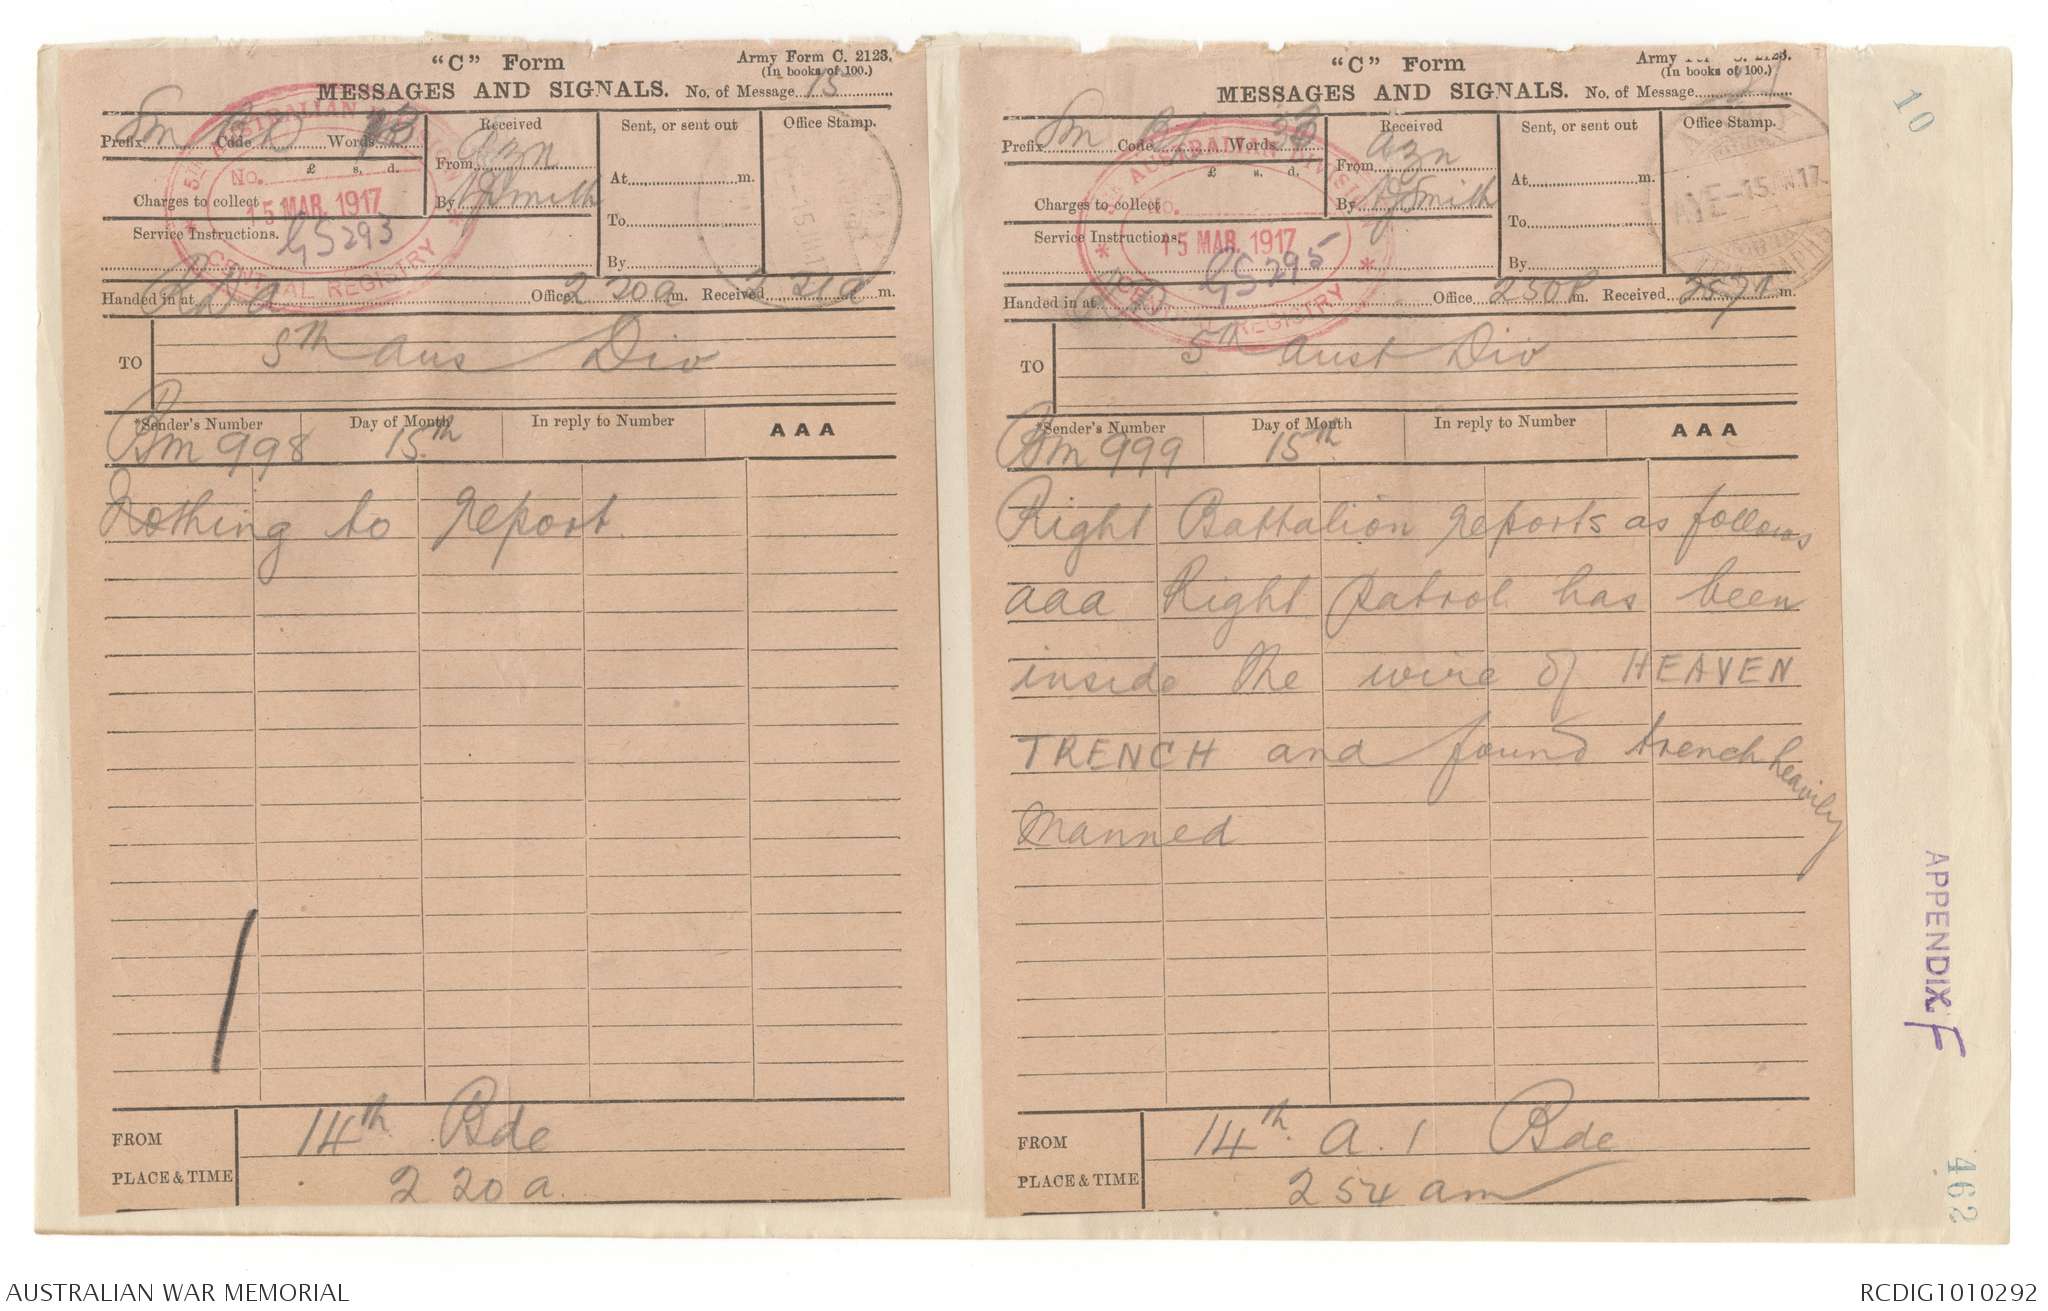 "C" Form
Army Form C. 2123.
(In books of 100.)
MESSAGES AND SIGNALS. No. of Message 15
Prefix Sm Code Words
Received
From Azn
By Smith
Sent, or sent out
At m.
To
By
Office Stamp.
£ s. d.
Charges to collect
Service Instructions. GS293
5TH AUSTRALIAN DIVISION
No.
15 MAR. 1917
CENTRAL REGISTRY
Handed in at Office 2 20a m. Received 2 21a m.
TO 5th Aus Div
*Sender's Number Day of Month In reply to Number AAA
Bm 998 15th
Nothing to report.
FROM 14th Bde
PLACE & TIME 2 20 a.
"C" Form
Army C. 2123.
(In books of 100.)
MESSAGES AND SIGNALS. No. of Message
Prefix Sm Code Words
Received
From Azn
By Smith
Sent, or sent out
At m.
To
By
Office Stamp.
£ s. d.
Charges to collect
Service Instructions. GS295
5TH AUSTRALIAN DIVISION
No.
15 MAR. 1917
CENTRAL REGISTRY
Handed in at Office m. Received m.
TO 5th Aust Div
*Sender's Number Day of Month In reply to Number AAA
Bm 999 15th
Right Battalion reports as follows
aaa Right patrol has been
inside the wire of HEAVEN
TRENCH and found trench heavily
Manned
FROM 14th A.I Bde
PLACE & TIME 2 54 am
10
APPENDIX F
462
AUSTRALIAN WAR MEMORIAL
RCDIG1010292